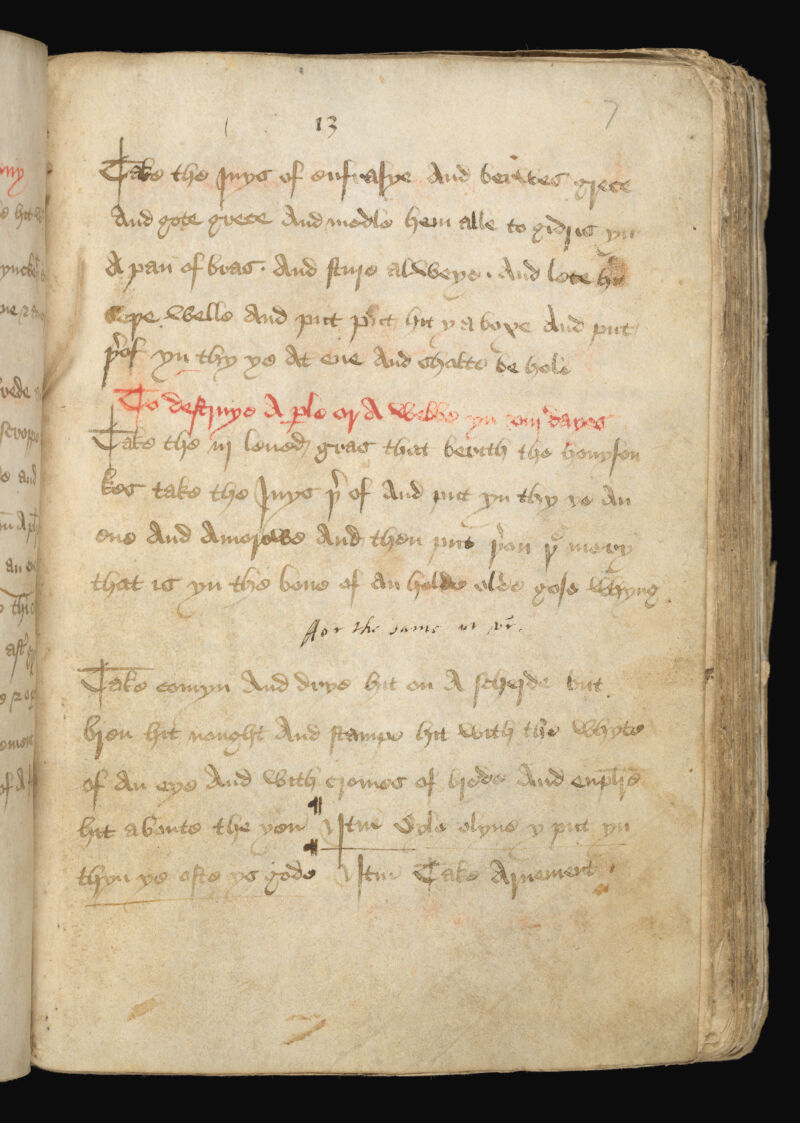 13
7
Take the Juys of eufrasye And berwes grece
And gote grece And medle hem alle to gidris yn
A pan of bras . And sture alweye . And lete hit
welle And put hit y a boxe And put
þrof yn thy ye At eue And shalte be hole
To destruye A perle or A webbe yn viij dayes
Take the iij leued gras that berith the honysou
kes take the Juys þrof And put yn thy ye An
eue And Amorowe And then put þron þe mery
that is yn the bone of An holde olde gose whyng
For the same
Take comyn And drye hit on A scherde but
bren hit nought And stampe hit with the whyte
of An eye And with cromes of brede And enplastre
hit aboute the yen ¶ Itm Oyle olyue y put yn
thyn ye ofte ys gode ¶ Itm Take Arnement